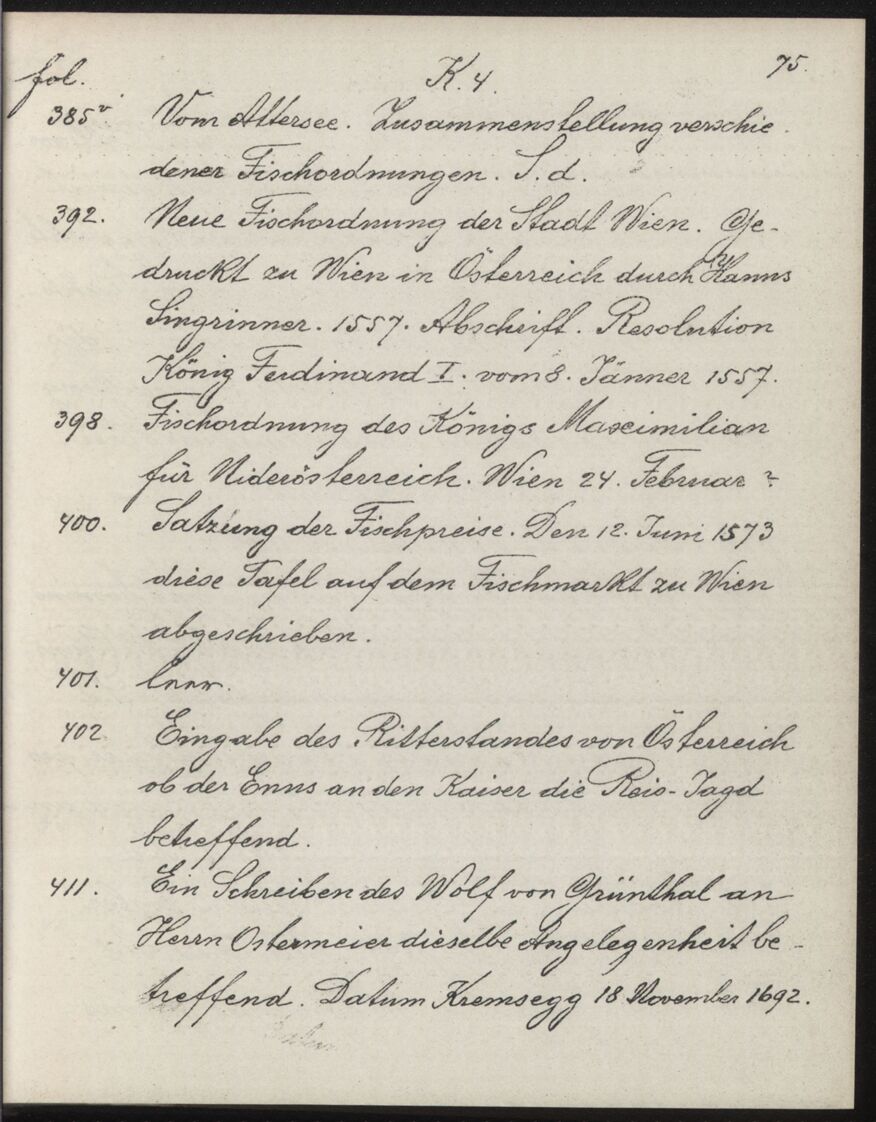 fol. K. 4. 75.
385v. Vom Attersee. Zusammenstellung verschie
dener Fischordnungen. S. d.
392. Neue Fischordnung der Stadt Wien. Ge-
druckt zu Wien in Österreich durch Hanns
Singrinner. 1557. Abschrift. Resolution
König Ferdinand I. vom 8. Jänner 1557.
398. Fischordnung des Königs Maximilian
für Niderösterreich. Wien 24. Februar ?
400. Satzung der Fischpreise. Den 12. Juni 1573
diese Tafel auf dem Fischmarkt zu Wien
abgeschrieben.
401. leer.
402 Eingabe des Ritterstandes von Österreich
ob der Enns an den Kaiser die Reis-Jagd
betreffend.
411. Ein Schreiben des Wolf von Grünthal an
Herrn Ostermeier dieselbe Angelegenheit be-
treffend. Datum Kremsegg 18 November 1692.